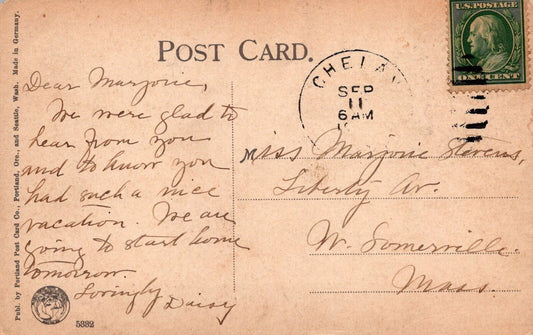 POST CARD.
U.S. POSTAGE
ONE CENT
CHELAN
SEP
11
6 AM
Dear Marjorie,
We were glad to
hear from you
and to know you
had such a nice
vacation. We are
going to start home
tomorrow.
Lovingly Daisy
Miss Marjorie Stevens,
Liberty Av.
W. Somerville.
Mass.
Publ. by Portland Post Card Co., Portland, Ore., and Seattle, Wash. Made in Germany.
5332